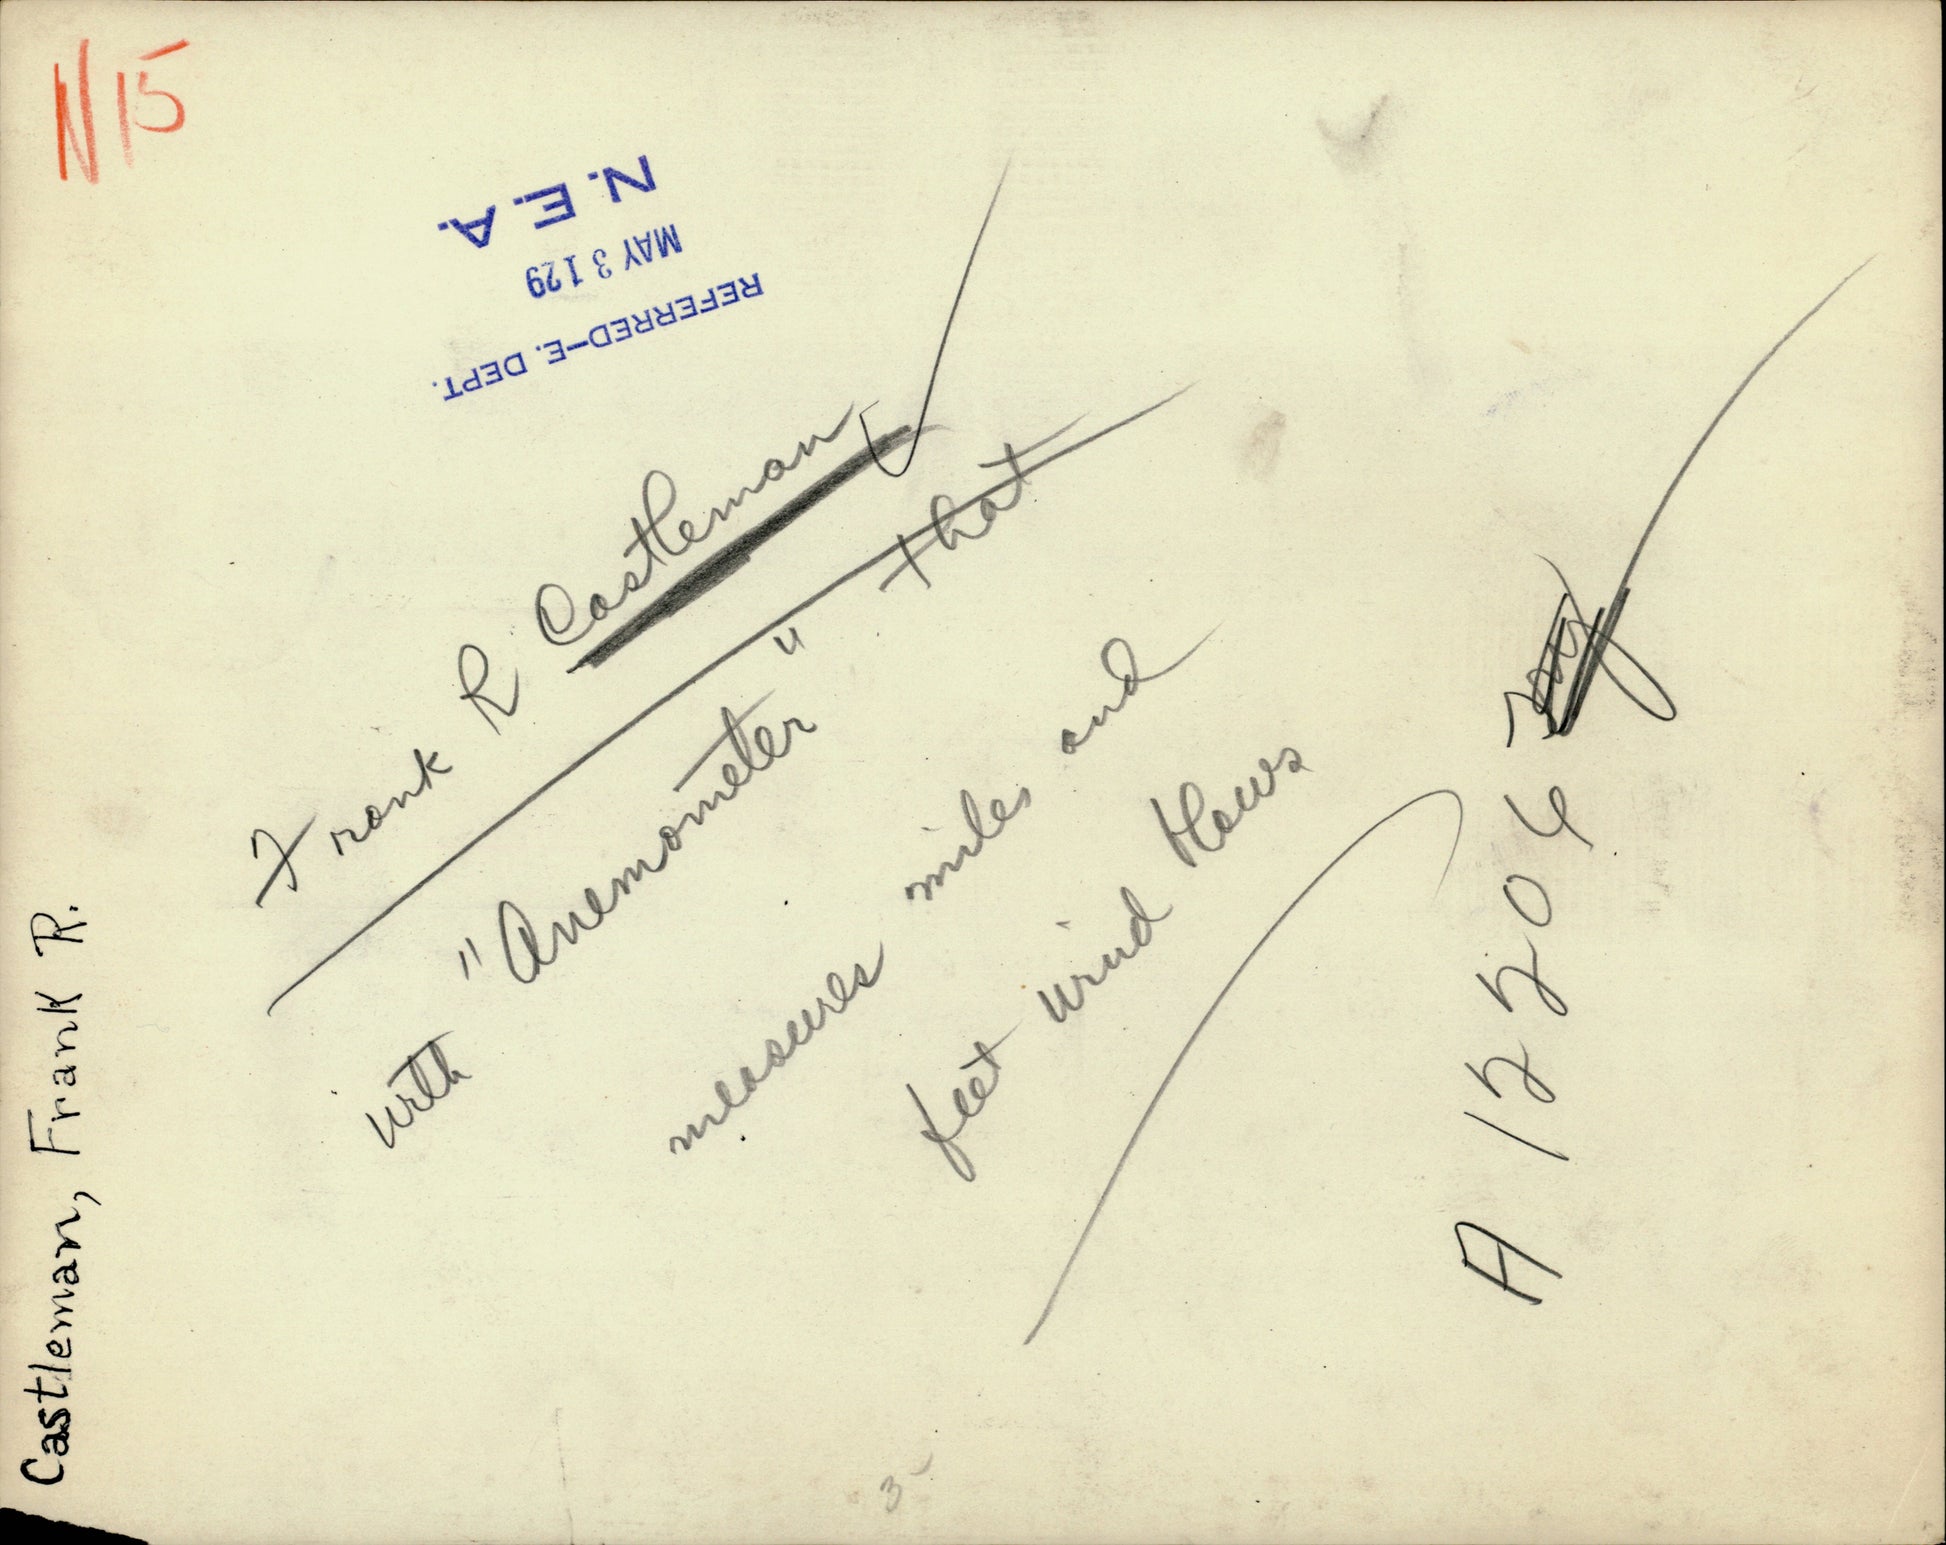 N15
N. E. A.
MAY 31 29
REFERRED-E. DEPT.
Frank R Castleman
with "Anemometer" that
measures miles and
feet wind blows
A 12204
Castleman, Frank R.
3-